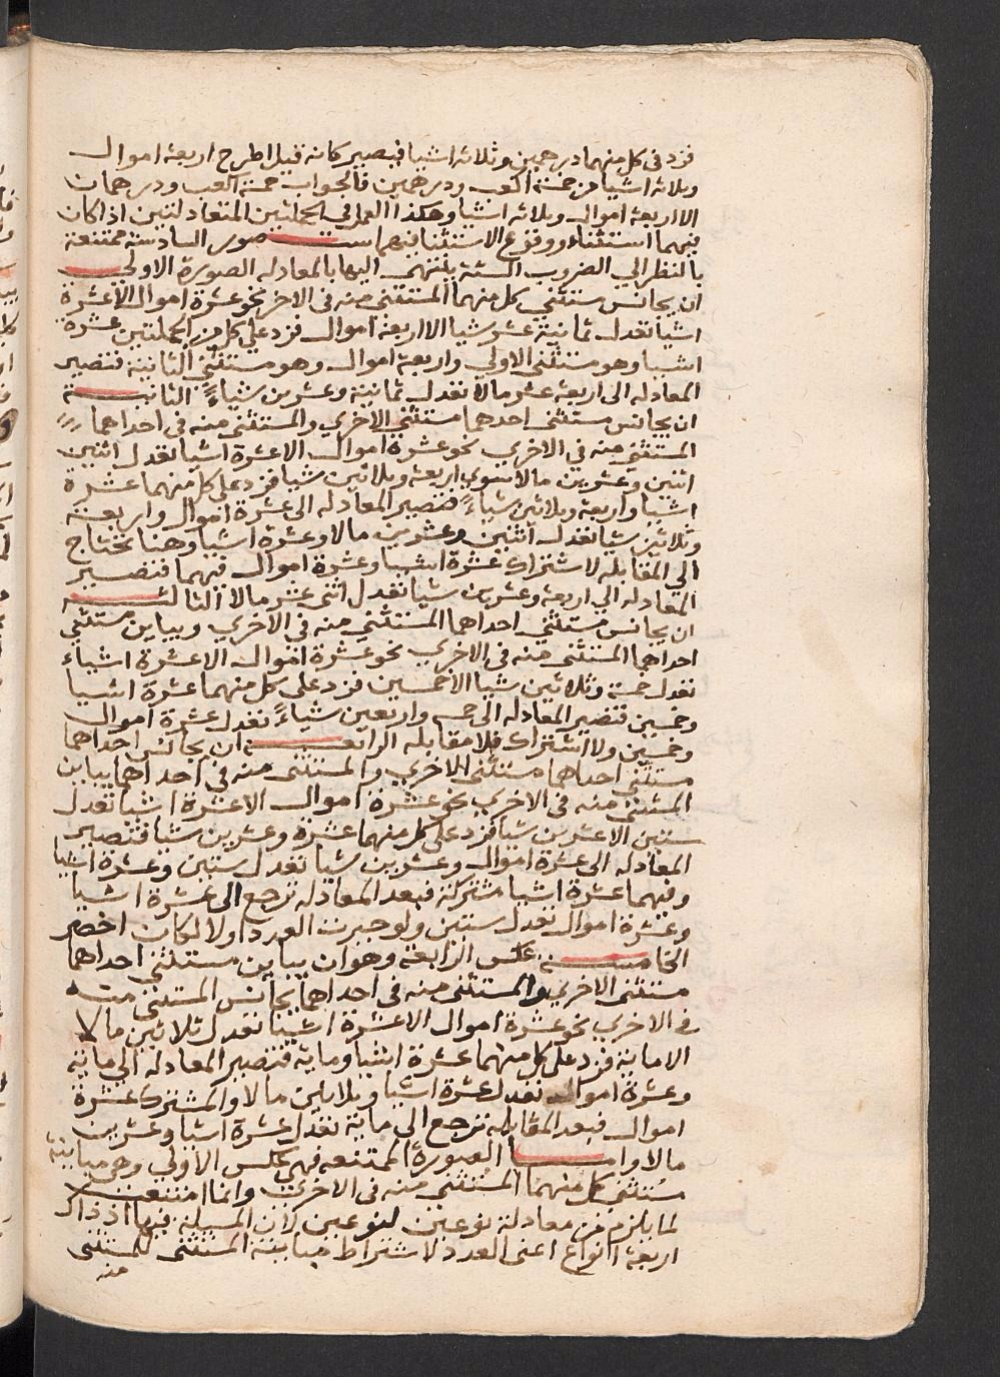 فزد فى كل منهما درهمين وثلاثه اشيا فيصير كانه قيل اطرح اربعة اموال
وثلاثه اشيا من خمسة اكعب ودرهمين فالجواب خمسة اكعب ودرهمان
الا اربعة اموال وثلاثه اشيا وهكذا العمل فى الجملتين المتعادلتين اذا كان
فيهما استثناء ووقوع الاستثنا فيهما ست صور السادسة ممتنعة
بالنظر الي الضروب الستة ينتهى اليها بالمعادله الصورة الاولى
ان يجانس مستثني كل منهما المستثنى منه فى الاخر نحو عشرة اموال الا عشرة
اشيا تعدل ثمانية عشر شيا الا اربعة اموال فزد على كل من الجملتين عشرة
اشيا وهو مستثنى الاولي واربعة اموال وهو مستثنى الثانية فتصير
المعادله الى اربعة عشر مالا تعدل ثمانية وعشرين شياءً الثانيـــة
ان يجانس مستثنى احدهما مستثني الاخري والمستثنى منه فى احداهما
المستثنى منه فى الاخري نحو عشرة اموال الا عشرة اشيا تعدل اثنين
اثنين وعشرين مالا سوي اربعة وثلاثين شيا فزد على كل منهما عشرة
اشيا واربعة وثلاثين شياءً فتصير المعادله الى عشرة اموال واربعة
وثلاثين شيا تعدل اثنين وعشرين مالا وعشرة اشيا وهنا تحتاج
الي المقابله لاشتراك عشرة اشيا وعشرة اموال فيهما فتصــير
المعادله الي اربعة وعشرين شيا تعدل اثنى عشر مالا الثالثـــه
ان يجانس مستثني احداهما المستثني منه فى الاخري ويباين مستثني
احداهما المستثنى منه فى الاخري نحو عشرة اموال الا عشرة اشياء
تعدل خمسة وثلاثين شيا الا خمسين فزد على كل منهما عشرة اشيا
وخمسين فتصير المعادله الى خمسة واربعين شياءً تعدل عشرة اموال
وخمسين ولا اشتراك فلا مقابله الرابعـــة ان يجانس احداهما
مستثنى احداهما مستثنى الاخري والمستثنى منه فى احداهما يباين
المستثنى منه فى الاخري نحو عشرة اموال الا عشرة اشيا تعدل
ستين الا عشرين شيا فزد على كل منهما عشرة وعشرين شيا فتصير
المعادله الى عشرة اموال وعشرين شيا تعدل ستين وعشرة اشيا
وفيهما عشرة اشيا مشتركة فبعد المعادله ترجع الى عشرة اشيا
وعشرة اموال تعدل ستين ولو جبرت العدد اولا لكان اخصر
الخامســـة عكس الرابعة وهو ان يباين مستثني احداهما
مستثنى الاخري والمستثنى منه فى احداهما يجانس المستثنى منه
فى الاخري نحو عشرة اموال الا عشرة اشيا تعدل ثلاثين مالا
الا ماية فزد على كل منهما عشرة اشيا وماية فتصير المعادله الى ماية
وعشرة اموال تعدل عشرة اشيا وثلاثين مالا والمشترك عشرة
اموال فبعد المقابله ترجع الى ماية تعدل عشرة اشيا وعشرين
مالا وامـــا الصورة الممتنعه فهى عكس الاولي وهى مباينة
مستثنى كل منهما المستثني منه فى الاخري وانما امتنعت
لما يلزم من معادلة نوعين لنوعين لان المسيلة فيها اذ ذاك
اربعة انواع اعنى العدد لاشتراط مباينة المستثنى للمستثنى
منه